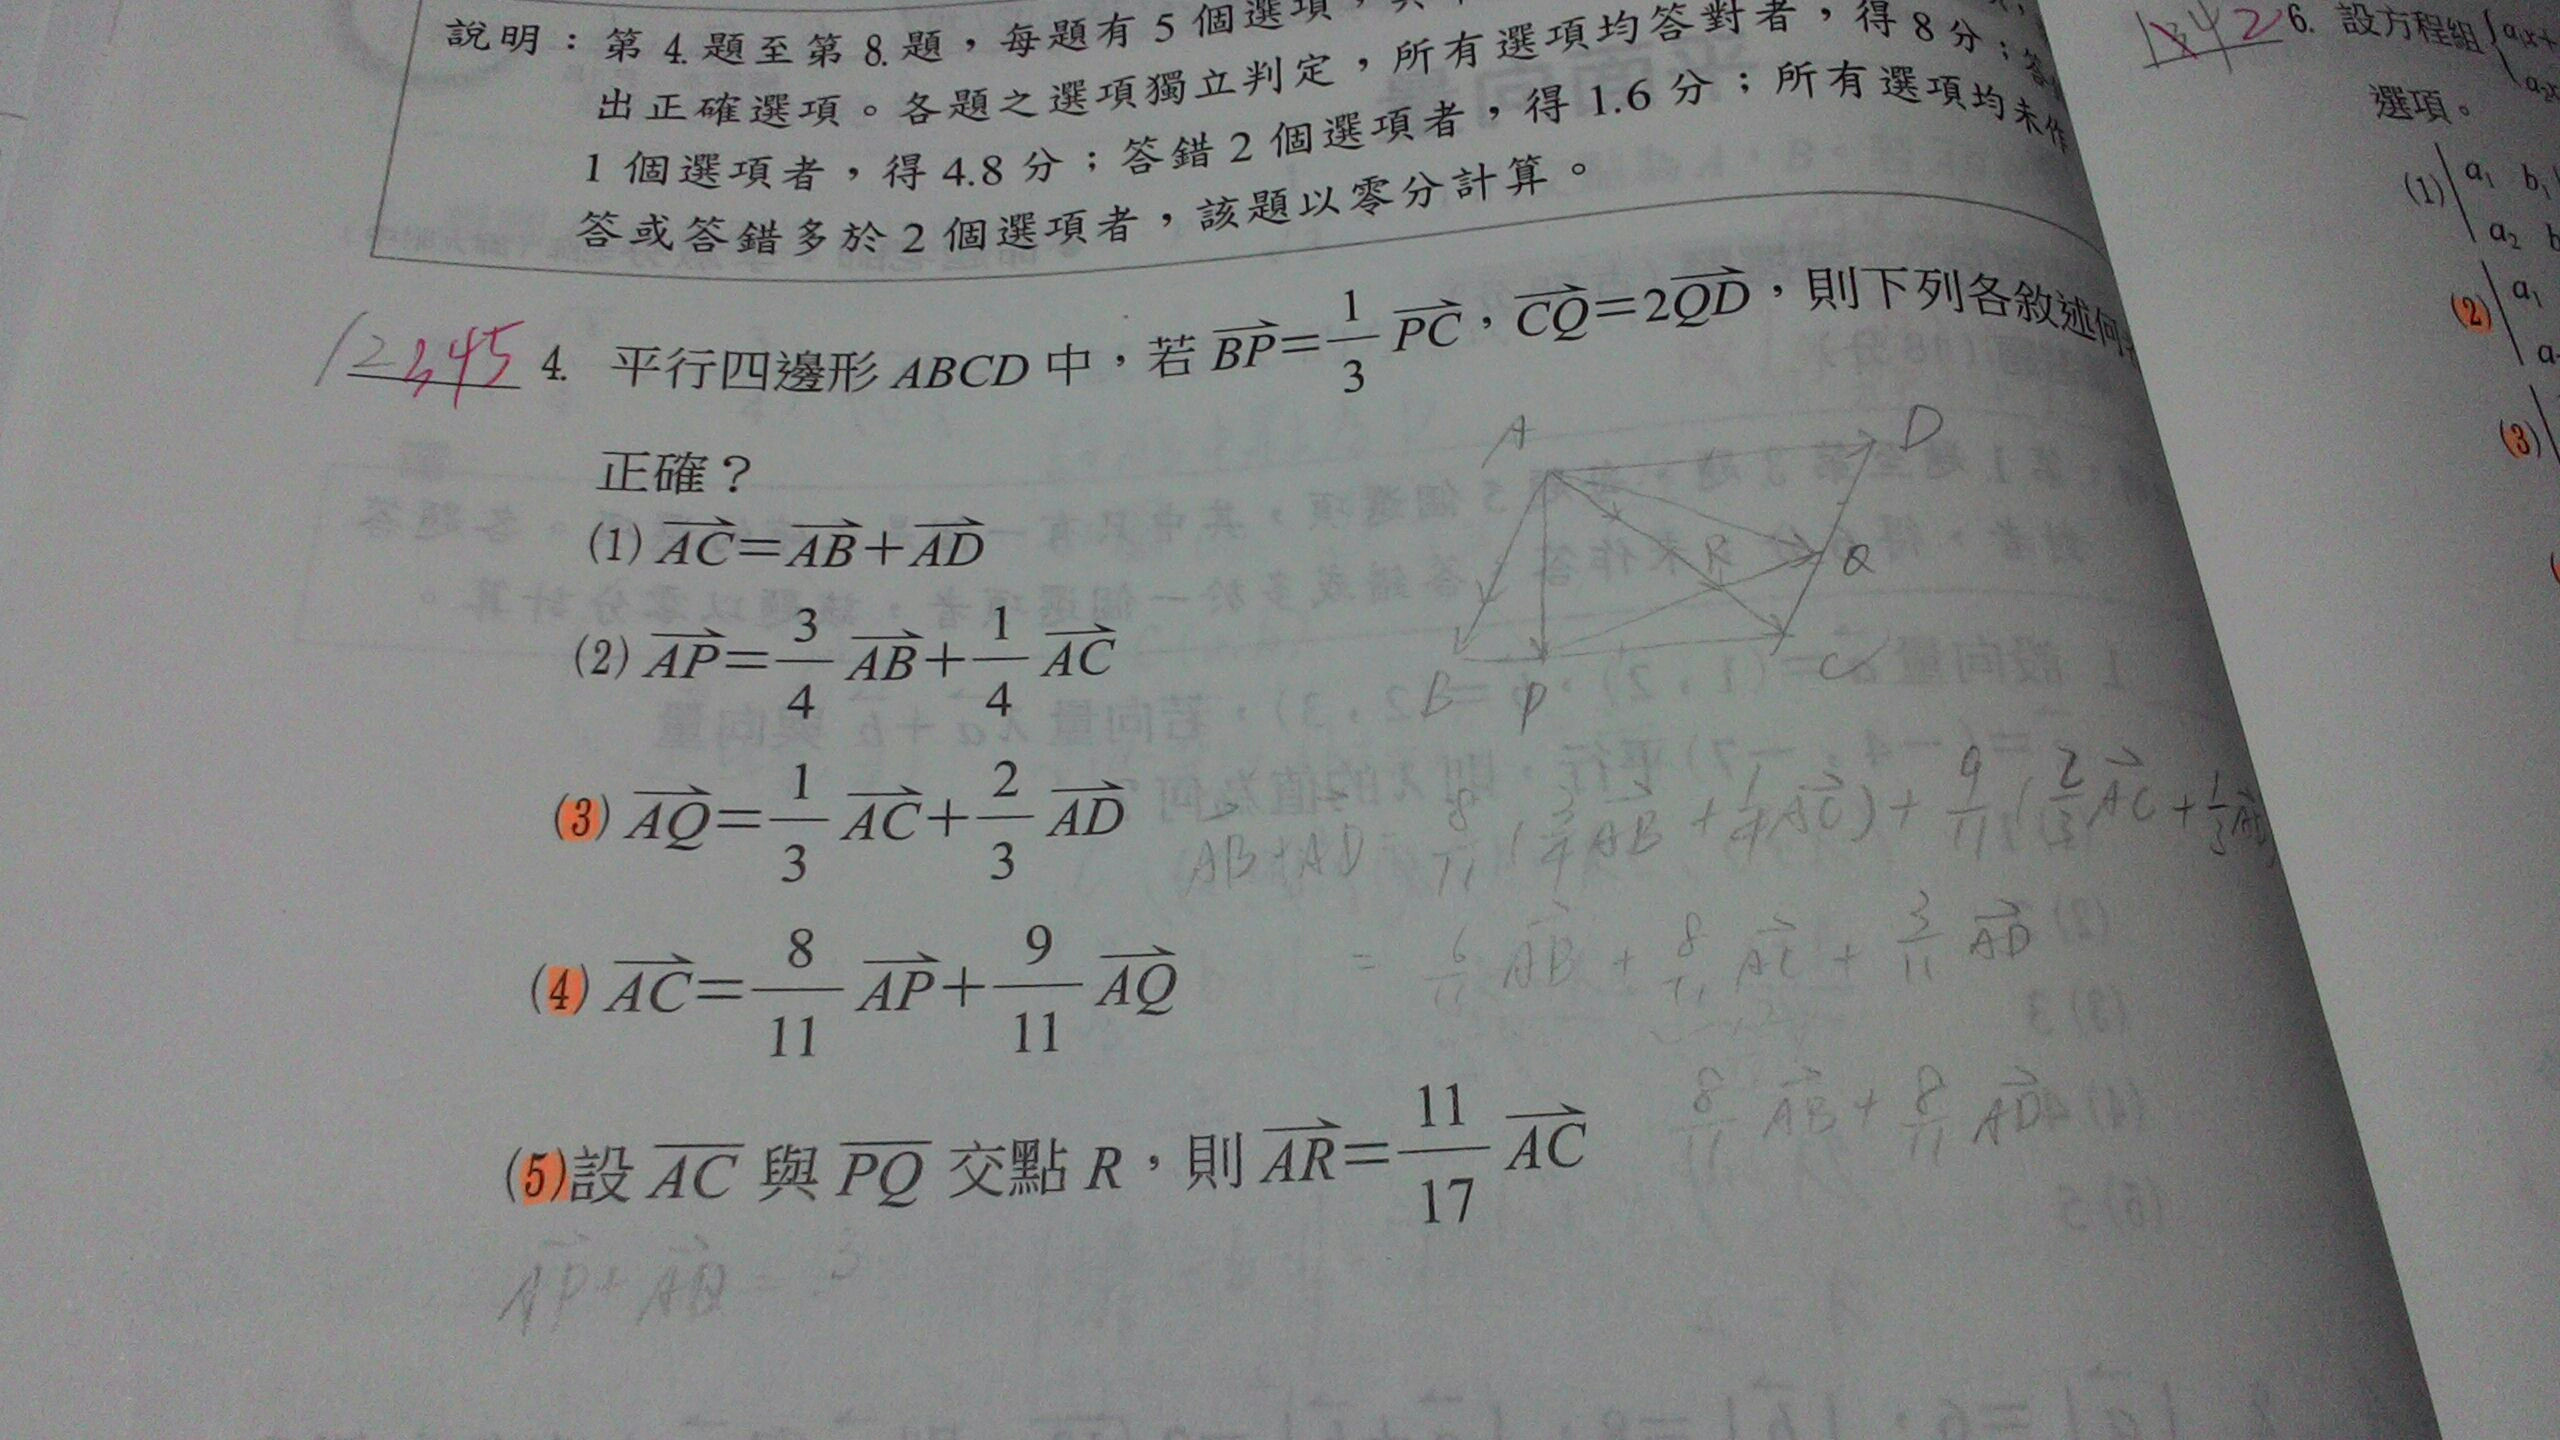 說明：第 4. 題至第 8. 題，每題有 5 個選項，其
出正確選項。各題之選項獨立判定，所有選項均答對者，得 8 分；答
1 個選項者，得 4.8 分；答錯 2 個選項者，得 1.6 分；所有選項均未作
答或答錯多於 2 個選項者，該題以零分計算。
12345 4. 平行四邊形 ABCD 中，若 BP⃗=1/3 PC⃗，CQ⃗=2QD⃗，則下列各敘述何
正確？
(1) AC⃗=AB⃗+AD⃗
(2) AP⃗=3/4 AB⃗+1/4 AC⃗
(3) AQ⃗=1/3 AC⃗+2/3 AD⃗
(4) AC⃗=8/11 AP⃗+9/11 AQ⃗
(5)設 A̅C̅ 與 P̅Q̅ 交點 R，則 AR⃗=11/17 AC⃗
A D
R Q
B P C
AB+AD=8/11(3/4AB⃗+1/4AC⃗)+9/11(2/3AC⃗+1/3
=6/11 AB⃗+8/11 AC⃗+3/11 AD⃗
8/11 AB⃗+8/11 AD⃗
AP⃗+AQ⃗=3
1342 6. 設方程組 a₁x+
a₂x
選項。
(1) a₁ b₁
a₂ b
(2) a₁
a
(3)